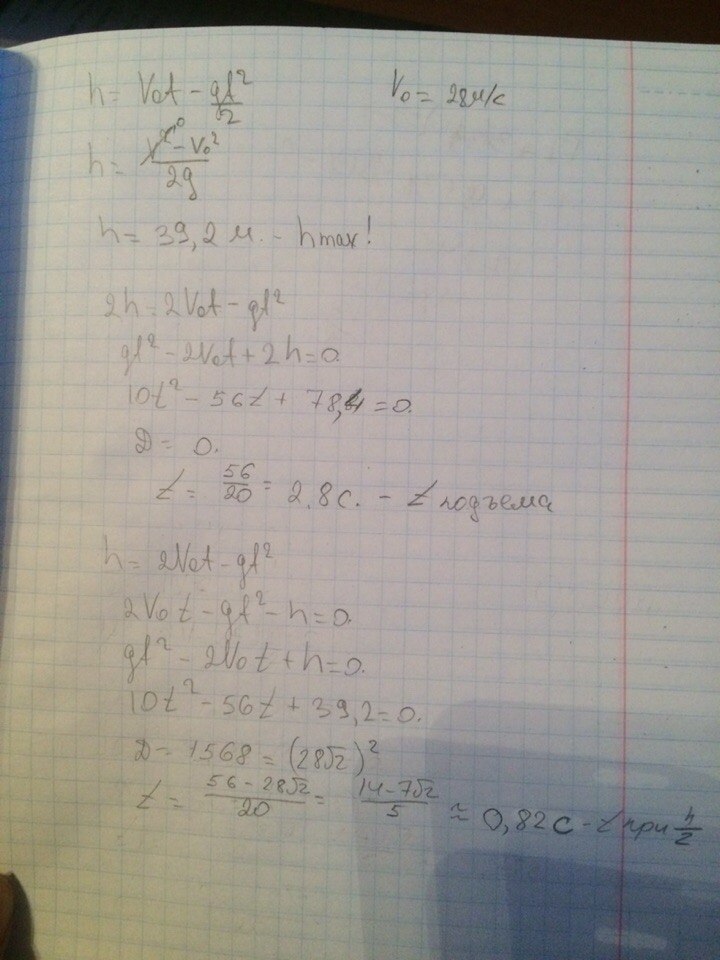 h = V₀t − gt²/2    V₀ = 28 м/с
h = (V² ⁰ − V₀²)/2g
h = 39,2 м. − hmax!
2h = 2V₀t − gt²
gt² − 2V₀t + 2h = 0.
10t² − 56t + 78,4 = 0.
D = 0.
t = 56/20 = 2.8 с. − t подъема
h = 2V₀t − gt²
2V₀t − gt² − h = 0.
gt² − 2V₀t + h = 0.
10t² − 56t + 39,2 = 0.
D = 1568 = (28√2)²
t = (56 − 28√2)/20 = (14 − 7√2)/5 ≈ 0,82 с − t при h/2